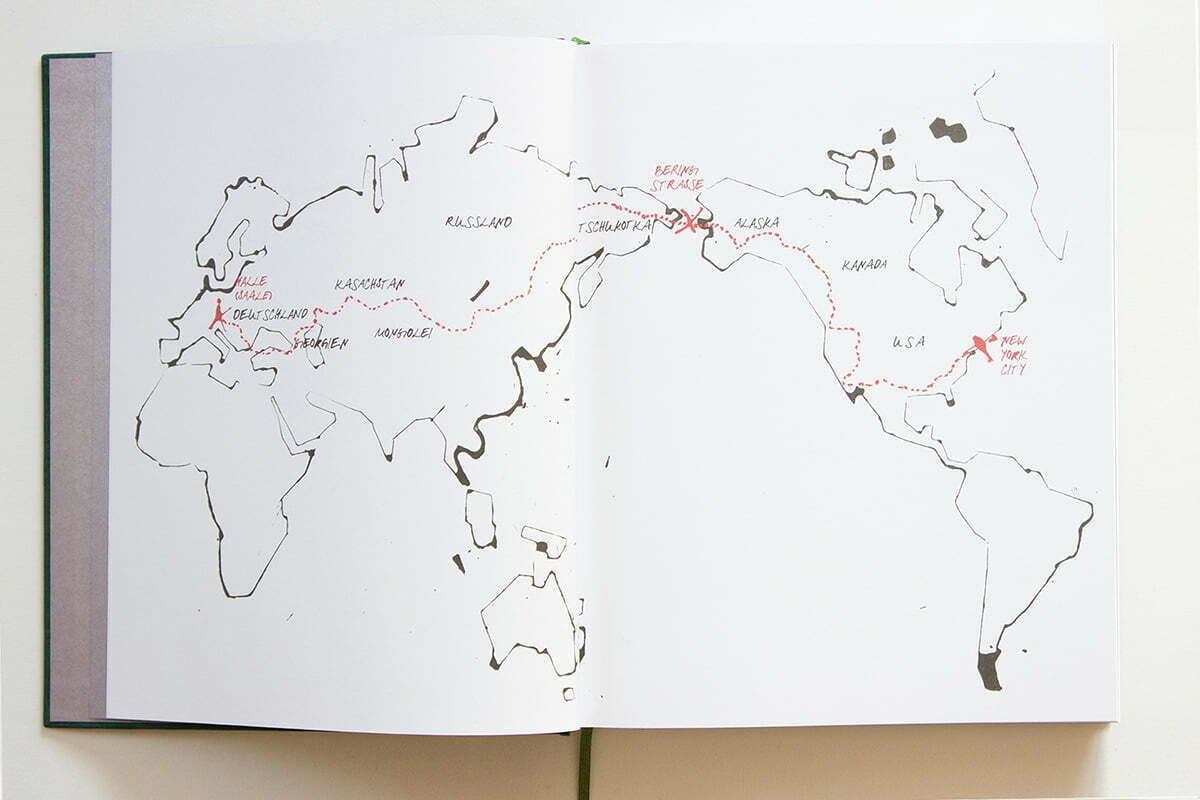 BERING
STRASSE
RUSSLAND
TSCHUKOTKA
ALASKA
KANADA
HALLE
(SAALE)
KASACHSTAN
DEUTSCHLAND
MONGOLEI
GEORGIEN
USA
NEW
YORK
CITY